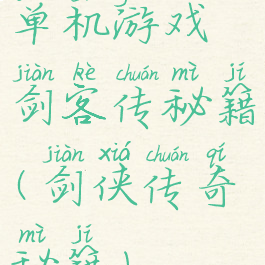 单机游戏
jiàn kè chuán mì jí
剑客传秘籍
jiàn xiá chuán qí
(剑侠传奇
mì jí
秘籍)